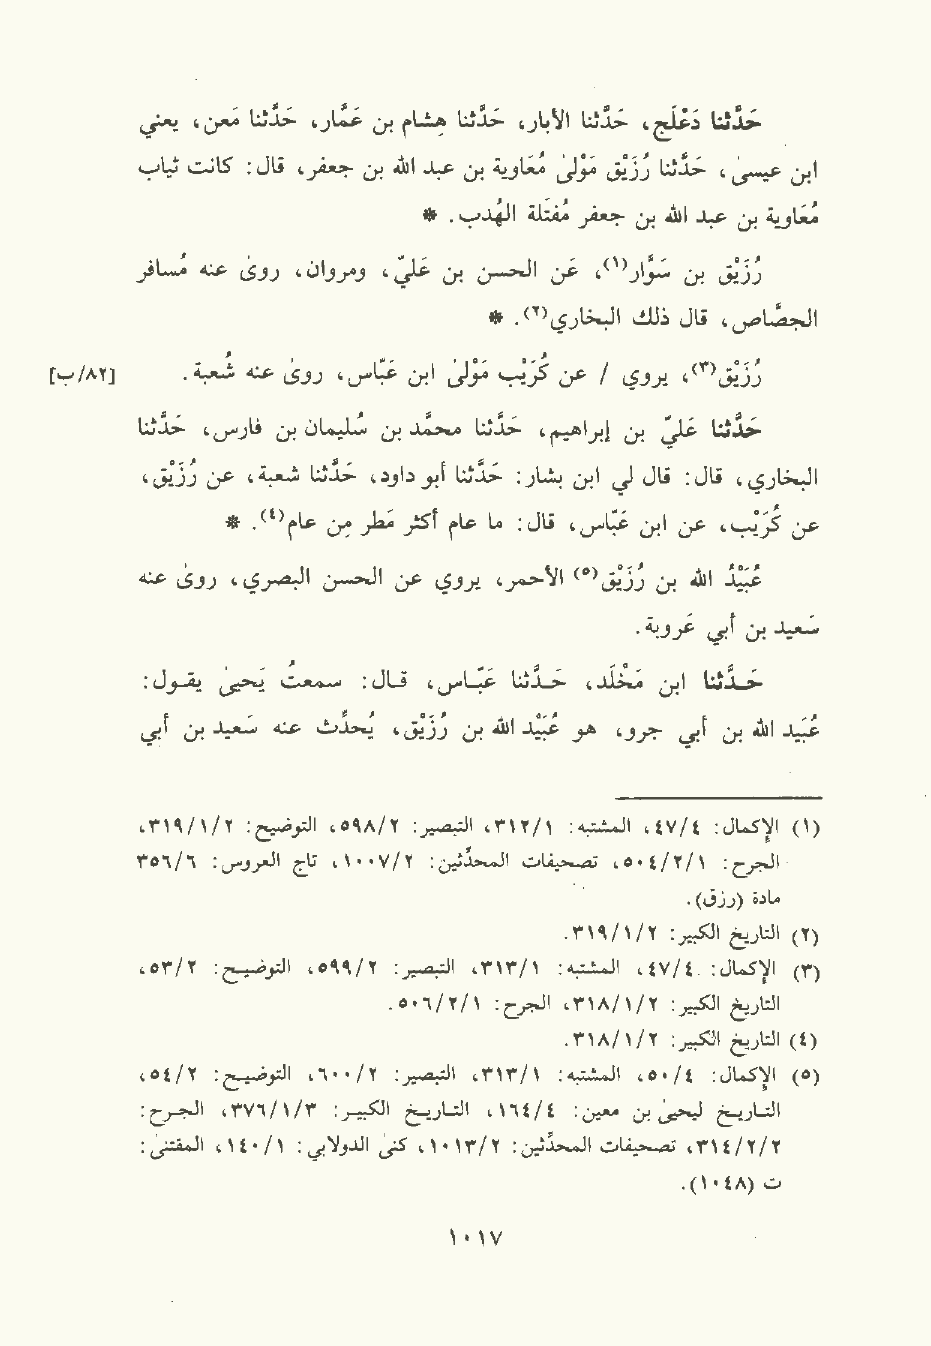 حَدَّثنا دَعْلَج، حَدَّثنا الأبار، حَدَّثنا هِشام بن عَمَّار، حَدَّثنا مَعن، يعني
ابن عيسىٰ، حَدَّثنا رُزَيْق مَوْلىٰ مُعَاوية بن عبد الله بن جعفر، قال: كانت ثياب
مُعَاوية بن عبد الله بن جعفر مُفتَلة الهُدب. *
رُزَيْق بن سَوَّار(١)، عَن الحسن بن عَليّ، ومروان، روىٰ عنه مُسافر
الجصَّاص، قال ذلك البخاري(٢). *
رُزَيْق(٣)، يروي / عن كُرَيْب مَوْلىٰ ابن عَبَّاس، روىٰ عنه شُعبة. [٨٢/ب]
حَدَّثنا عَليّ بن إبراهيم، حَدَّثنا محمَّد بن سُليمان بن فارس، حَدَّثنا
البخاري، قال: قال لي ابن بشار: حَدَّثنا أبو داود، حَدَّثنا شعبة، عن رُزَيْق،
عن كُرَيْب، عن ابن عَبَّاس، قال: ما عام أكثر مَطر مِن عام(٤). *
عُبَيْدُ الله بن رُزَيْق(٥) الأحمر، يروي عن الحسن البصري، روىٰ عنه
سَعيد بن أبي عَروبة.
حَدَّثنا ابن مَخْلَد، حَدَّثنا عَبَّاس، قال: سمعتُ يَحيىٰ يقول:
عُبَيد الله بن أبي جرو، هو عُبَيْد الله بن رُزَيْق، يُحدِّث عنه سَعيد بن أبي
(١) الإكمال: ٤/٤٧، المشتبه: ٣١٢/١، التبصير: ٥٩٨/٢، التوضيح: ٣١٩/١/٢،
الجرح: ٥٠٤/٢/١، تصحيفات المحدِّثين: ١٠٠٧/٢، تاج العروس: ٣٥٦/٦
مادة (رزق).
(٢) التاريخ الكبير: ٣١٩/١/٢.
(٣) الإكمال: ٤٧/٤، المشتبه: ٣١٣/١، التبصير: ٥٩٩/٢، التوضيح: ٥٣/٢،
التاريخ الكبير: ٣١٨/١/٢، الجرح: ٥٠٦/٢/١.
(٤) التاريخ الكبير: ٣١٨/١/٢.
(٥) الإكمال: ٥٠/٤، المشتبه: ٣١٣/١، التبصير: ٦٠٠/٢، التوضيح: ٥٤/٢،
التاريخ ليحيىٰ بن معين: ١٦٤/٤، التاريخ الكبير: ٣٧٦/١/٣، الجرح:
٣١٤/٢/٢، تصحيفات المحدِّثين: ١٠١٣/٢، كنىٰ الدولابي: ١٤٠/١، المقتنىٰ:
ت (١٠٤٨).
١٠١٧